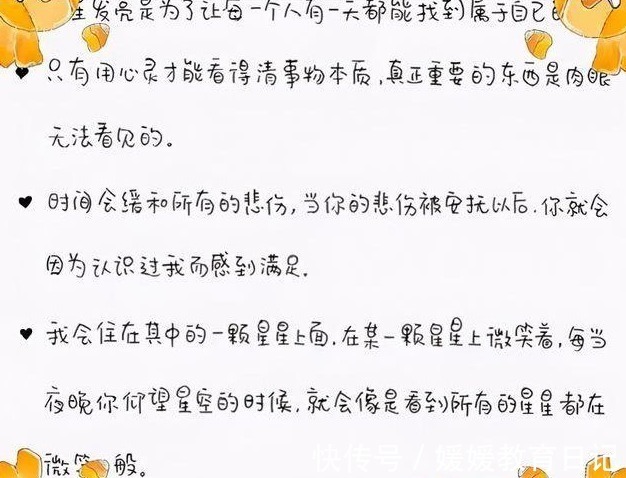 星发亮是为了让每一个人有一天都能找到属于自己的
♥ 只有用心灵才能看得清事物本质,真正重要的东西是肉眼
无法看见的。
♥ 时间会缓和所有的悲伤,当你的悲伤被安抚以后.你就会
因为认识过我而感到满足.
♥ 我会住在其中的一颗星星上面.在某一颗星星上微笑着,每当
夜晚你仰望星空的时候,就会像是看到所有的星星都在
微笑一般。
快传号 / 媛媛教育日记